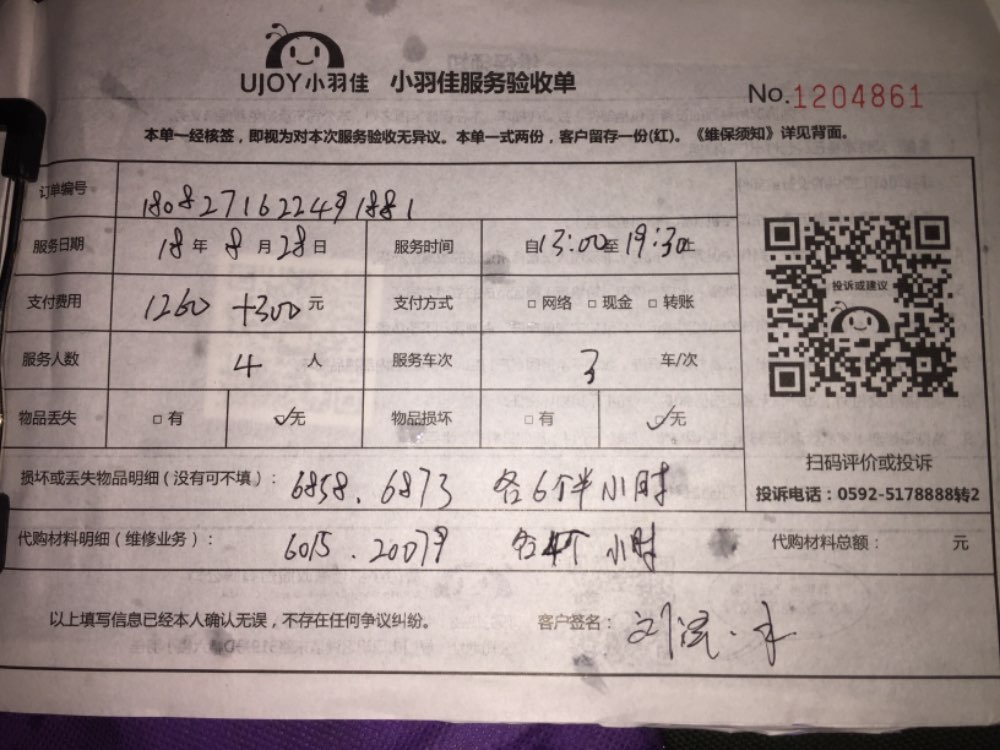 UJOY小羽佳 小羽佳服务验收单
No.1204861
本单一经核签，即视为对本次服务验收无异议。本单一式两份，客户留存一份(红)。《维保须知》详见背面。
订单编号 1808271622491881
服务日期 18年8月28日 服务时间 自13:00至19:30止
支付费用 1260+300元 支付方式 □网络 □现金 □转账
投诉或建议
服务人数 4人 服务车次 3车/次
物品丢失 □有 ☑无 物品损坏 □有 ☑无
扫码评价或投诉
损坏或丢失物品明细（没有可不填）： 6858.6873 各6个半小时
投诉电话：0592-5178888转2
代购材料明细（维修业务）： 6015.20079 各4个小时
代购材料总额： 元
以上填写信息已经本人确认无误，不存在任何争议纠纷。 客户签名：